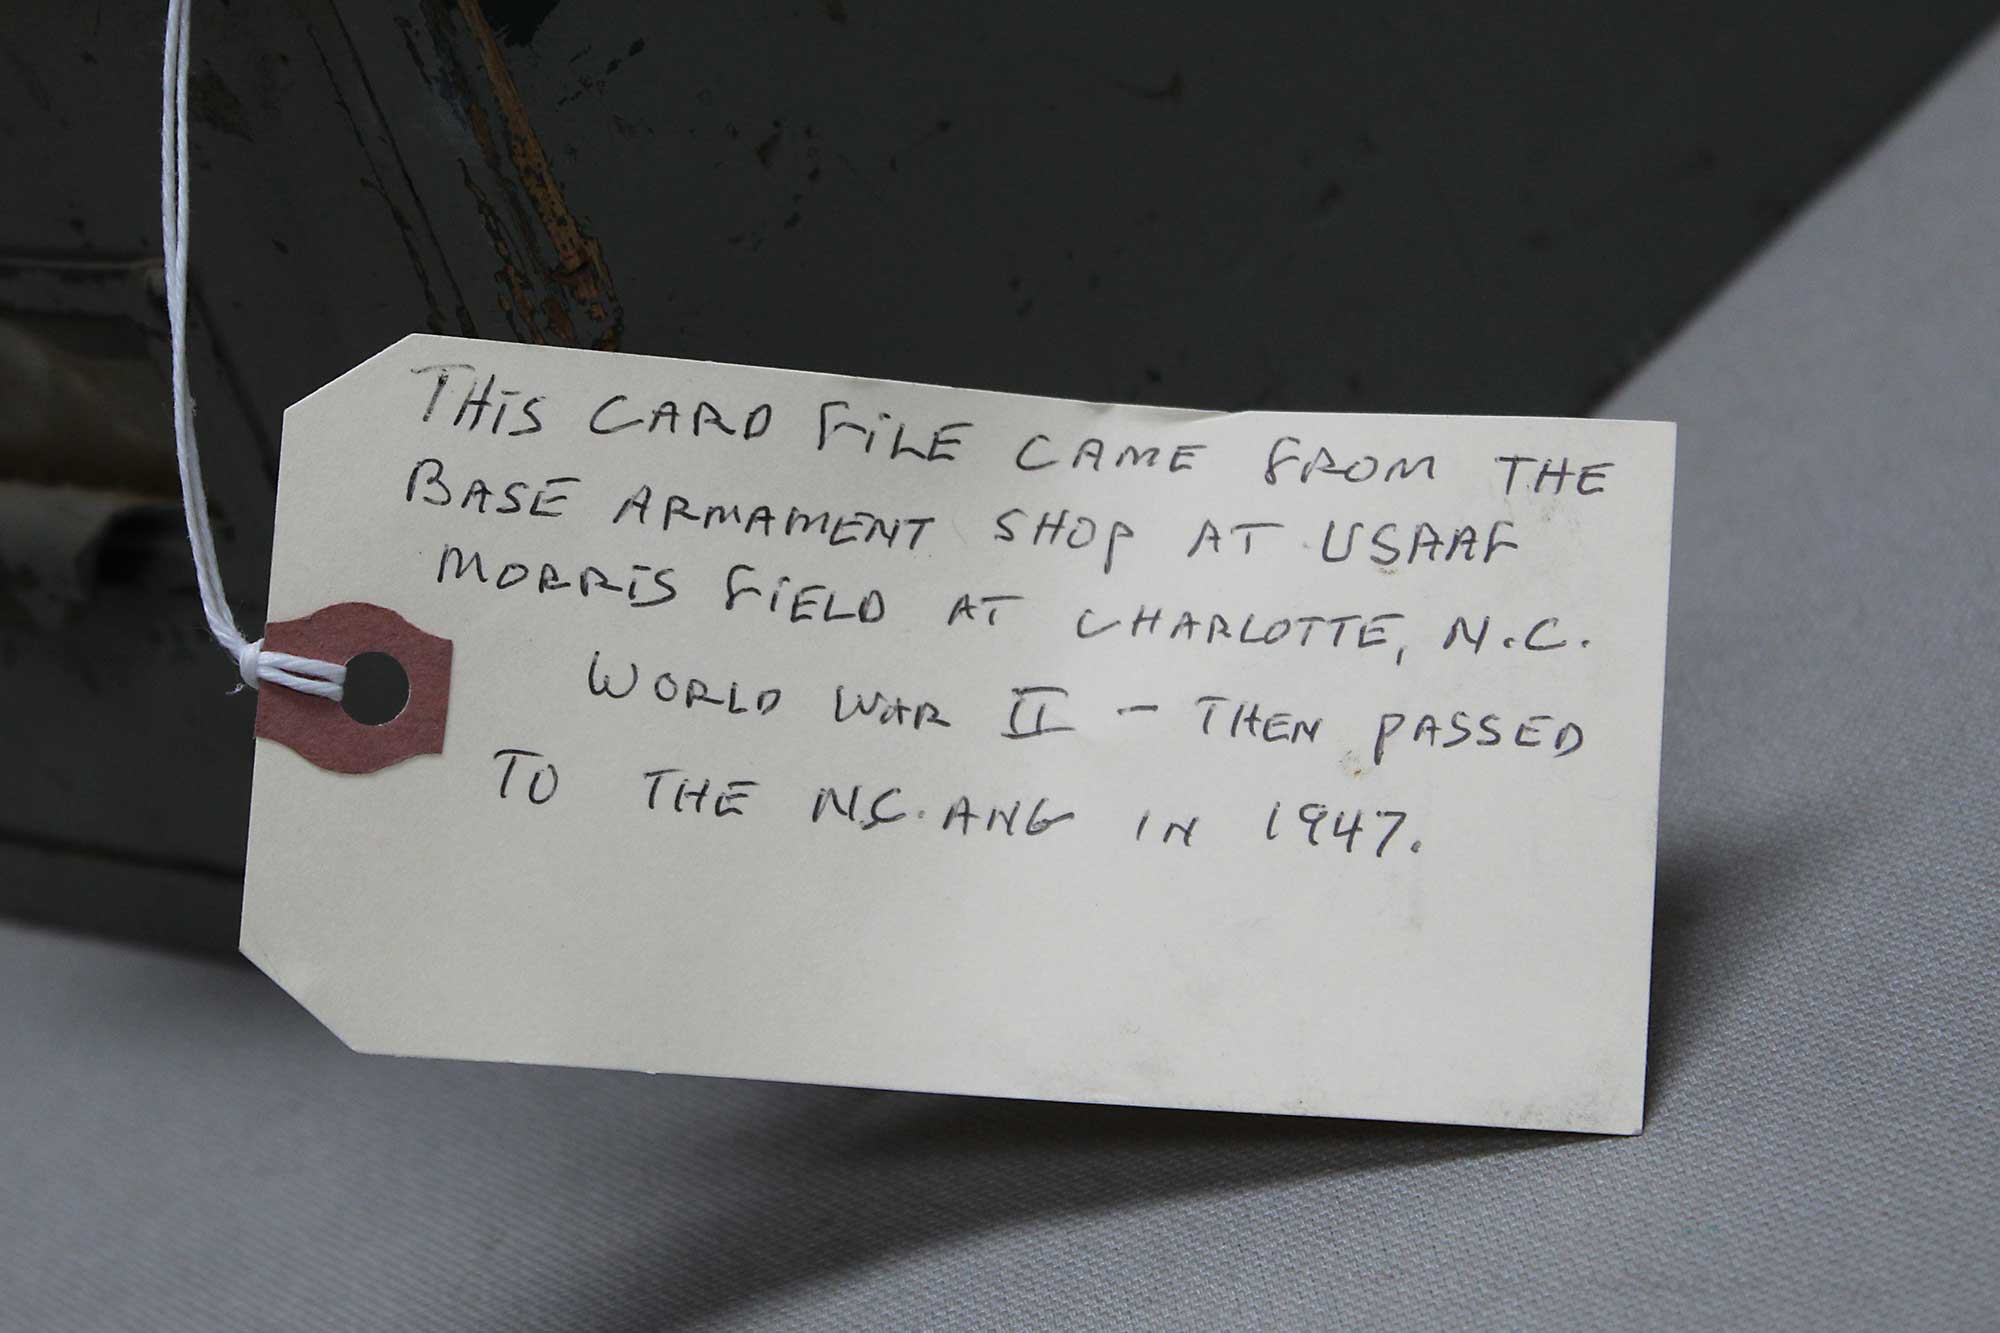 THIS CARD FILE CAME FROM THE
BASE ARMAMENT SHOP AT USAAF
MORRIS FIELD AT CHARLOTTE, N.C.
WORLD WAR II - THEN PASSED
TO THE N.C. ANG IN 1947.